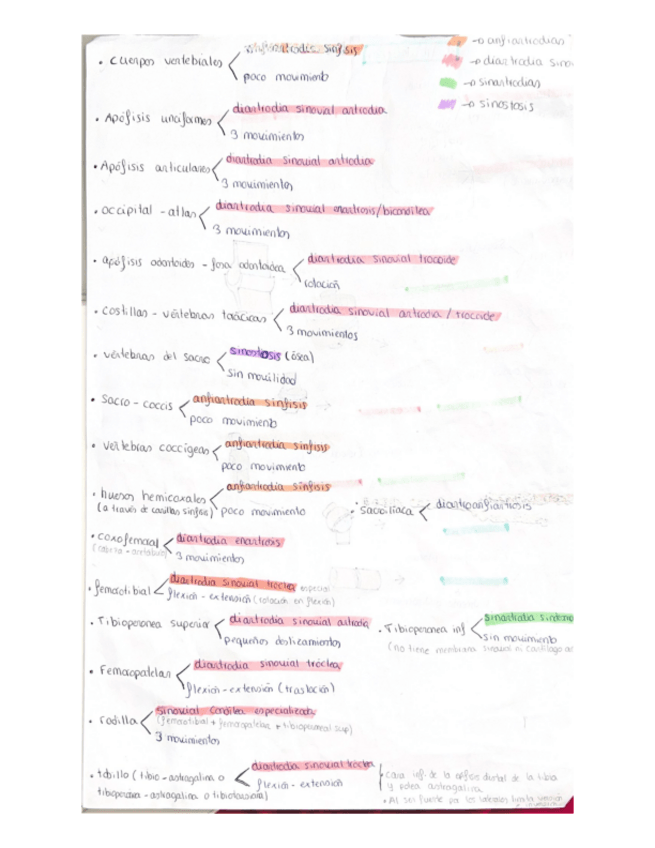 • cuerpos vertebrales < anfiartrodia sínfisis
poco movimiento
-o anfiartrodias
-o diartrodia sino
-o sinartrodias
-o sinostosis
• Apófisis unciformes < diartrodia sinovial artrodia
3 movimientos
• Apófisis articulares < diartrodia sinovial artrodia
3 movimientos
• occipital - atlas < diartrodia sinovial enartrosis/bicondílea
3 movimientos
• apófisis odontoides - fosa odontoidea < diartrodia sinovial trocoide
rotación
• costillas - vértebras torácicas < diartrodia sinovial artrodia / trocoide
3 movimientos
• vértebras del sacro < sinostosis (ósea)
sin movilidad
• sacro - coccis < anfiartrodia sínfisis
poco movimiento
• vertebras coccígeas < anfiartrodia sínfisis
poco movimiento
• huesos hemicoxales < anfiartrodia sínfisis
(a través de sínfisis) poco movimiento
• sacoilíaca < diartroanfiartrosis
• coxofemoral < diartrodia enartrosis
(cabeza - acetábulo) 3 movimientos
• femorotibial < diartrodia sinovial troclea especial
flexión - extensión (rotación en flexión)
• Tibioperonea superior < diartrodia sinovial artrodia
pequeños deslizamientos
• Tibioperonea inf < sinartrodia
sin movimiento
(no tiene membrana sinovial ni cartílago
• Femoropatelar < diartrodia sinovial tróclea
flexión - extensión (traslación)
• rodilla < sinovial condílea especializada
(femorotibial + femoropatelar + tibioperoneal sup)
3 movimientos
• tobillo (tibio - astragalina o < diartrodia sinovial troclea
tiboperonea - astragalina o tibiotarsiana) flexión - extensión
• cara inf. de la epífisis distal de la tibia
y polea astragalina
• Al ser fuerte por los